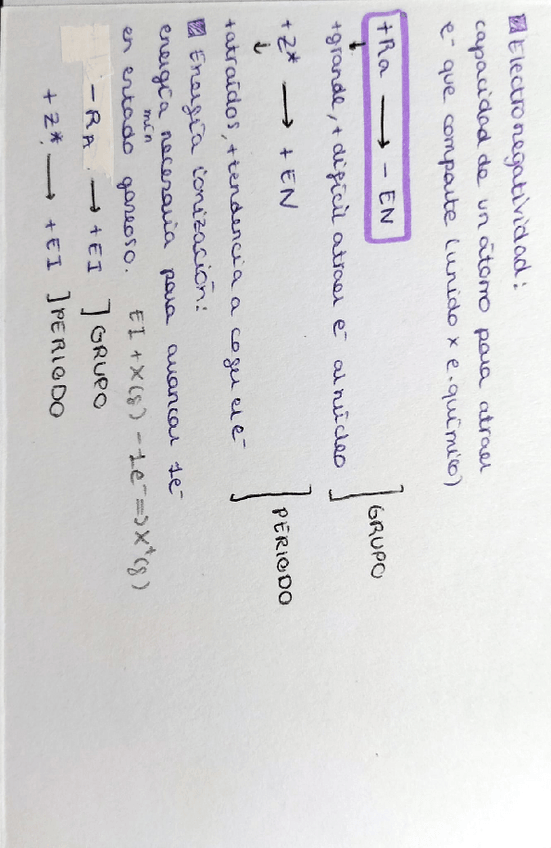 Electronegatividad:
capacidad de un átomo para atraer
e⁻ que comparte (unido x e. químico)
+Ra → - EN
↓
+grande, + difícil atraer e⁻ al núcleo ] GRUPO
+Z* → + EN
↓
+atraídos, +tendencia a coger el e⁻ ] PERIODO
Energía ionización:
energía min necesaria para arrancar 1e⁻
en estado gaseoso. EI + X(g) - 1e⁻ => X⁺(g)
- RA → + EI ] GRUPO
+ Z* → + EI ] PERIODO